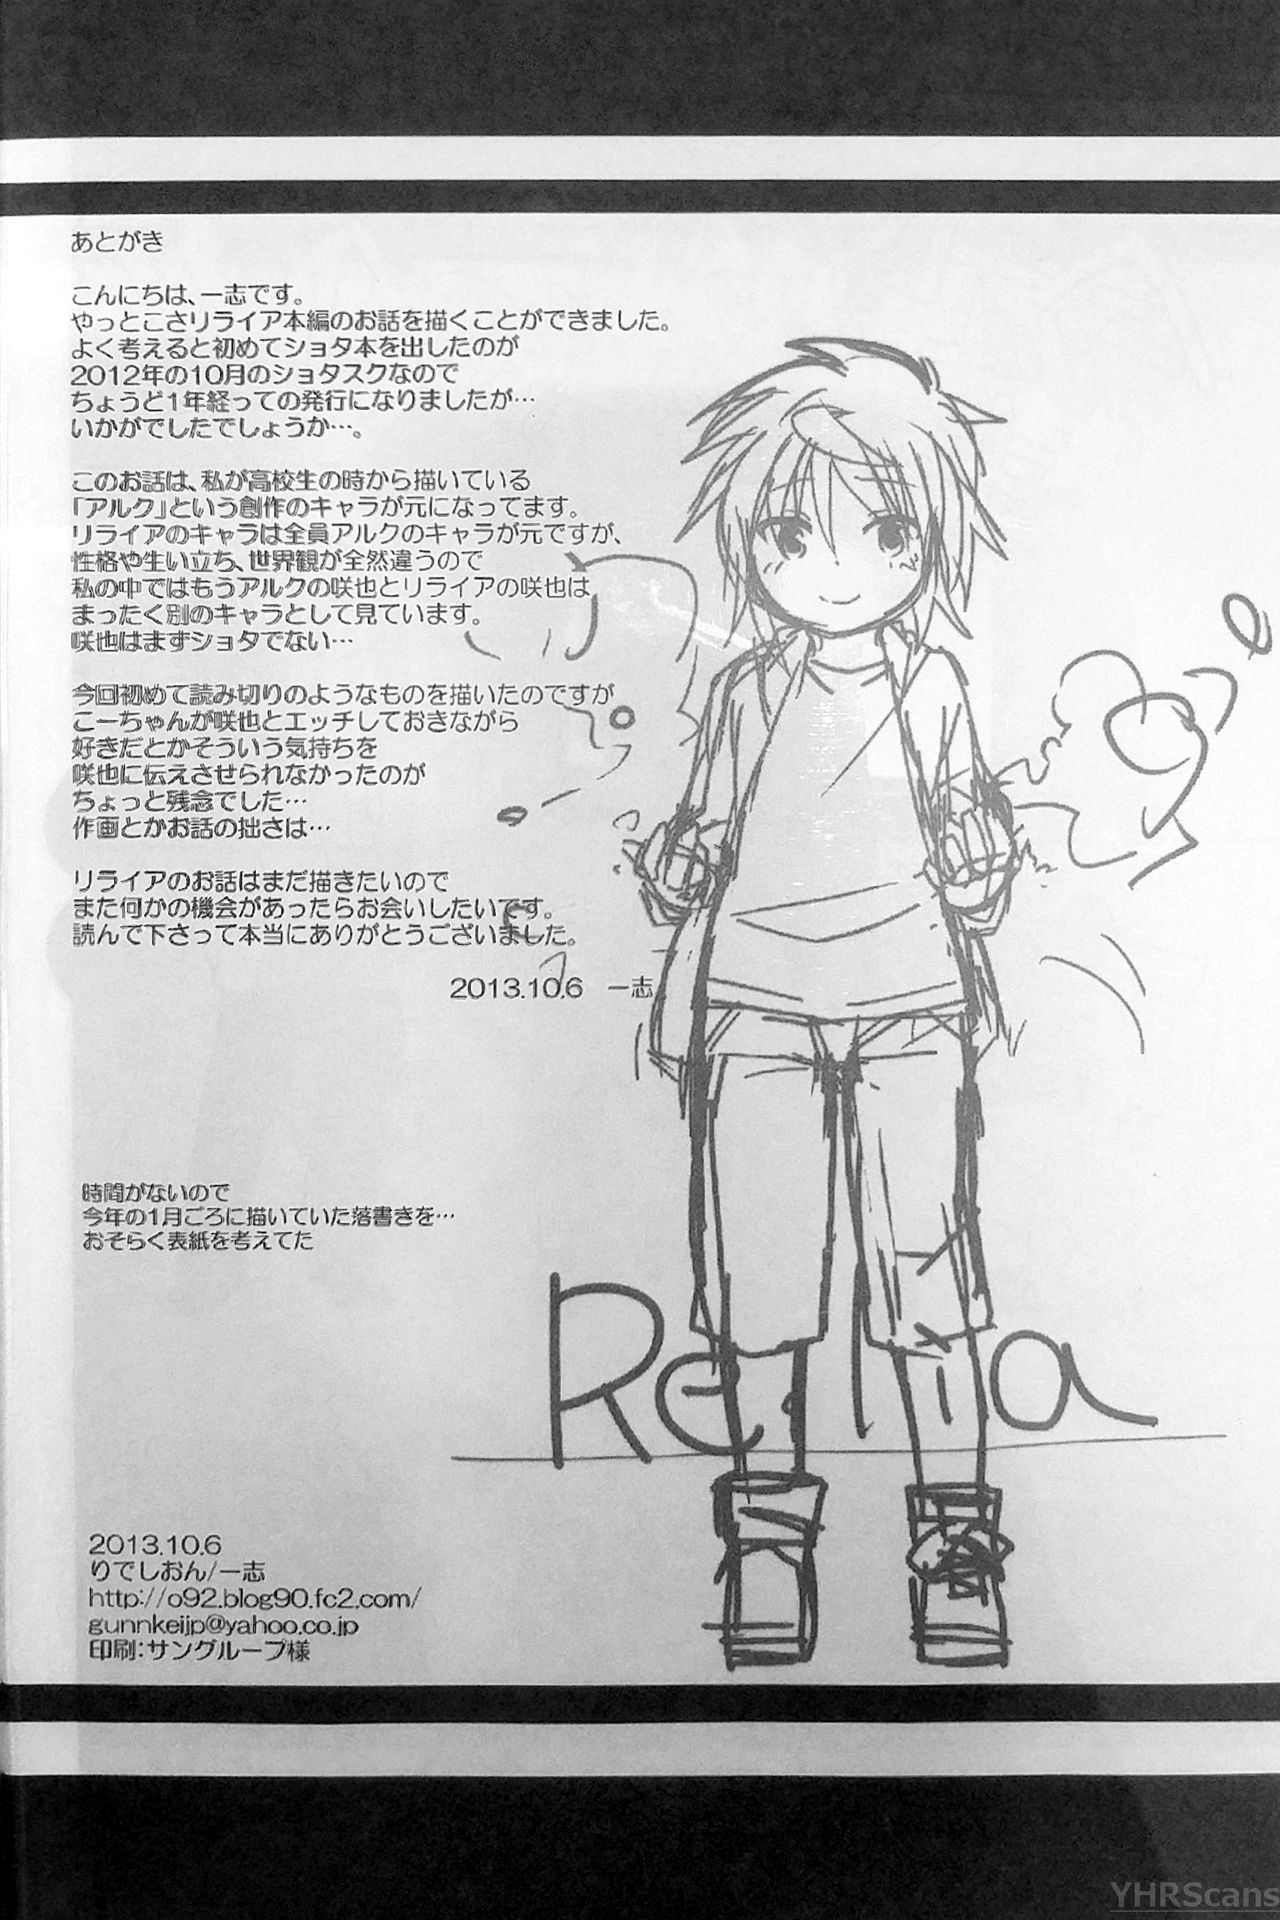 あとがき
こんにちは、一志です。
やっとこさリライア本編のお話を描くことができました。
よく考えると初めてショタ本を出したのが
2012年の10月のショタスクなので
ちょうど1年経っての発行になりましたが…
いかがでしたでしょうか…。
このお話は、私が高校生の時から描いている
「アルク」という創作のキャラが元になってます。
リライアのキャラは全員アルクのキャラが元ですが、
性格や生い立ち、世界観が全然違うので
私の中ではもうアルクの咲也とリライアの咲也は
まったく別のキャラとして見ています。
咲也はまずショタでない…
今回初めて読み切りのようなものを描いたのですが
こーちゃんが咲也とエッチしておきながら
好きだとかそういう気持ちを
咲也に伝えさせられなかったのが
ちょっと残念でした…
作画とかお話の拙さは…
リライアのお話はまだ描きたいので
また何かの機会があったらお会いしたいです。
読んで下さって本当にありがとうございました。
2013.10.6　一志
時間がないので
今年の1月ごろに描いていた落書きを…
おそらく表紙を考えてた
Relia
2013.10.6
りでしおん/一志
http://o92.blog90.fc2.com/
gunnkeijp@yahoo.co.jp
印刷：サングループ様
YHRScans